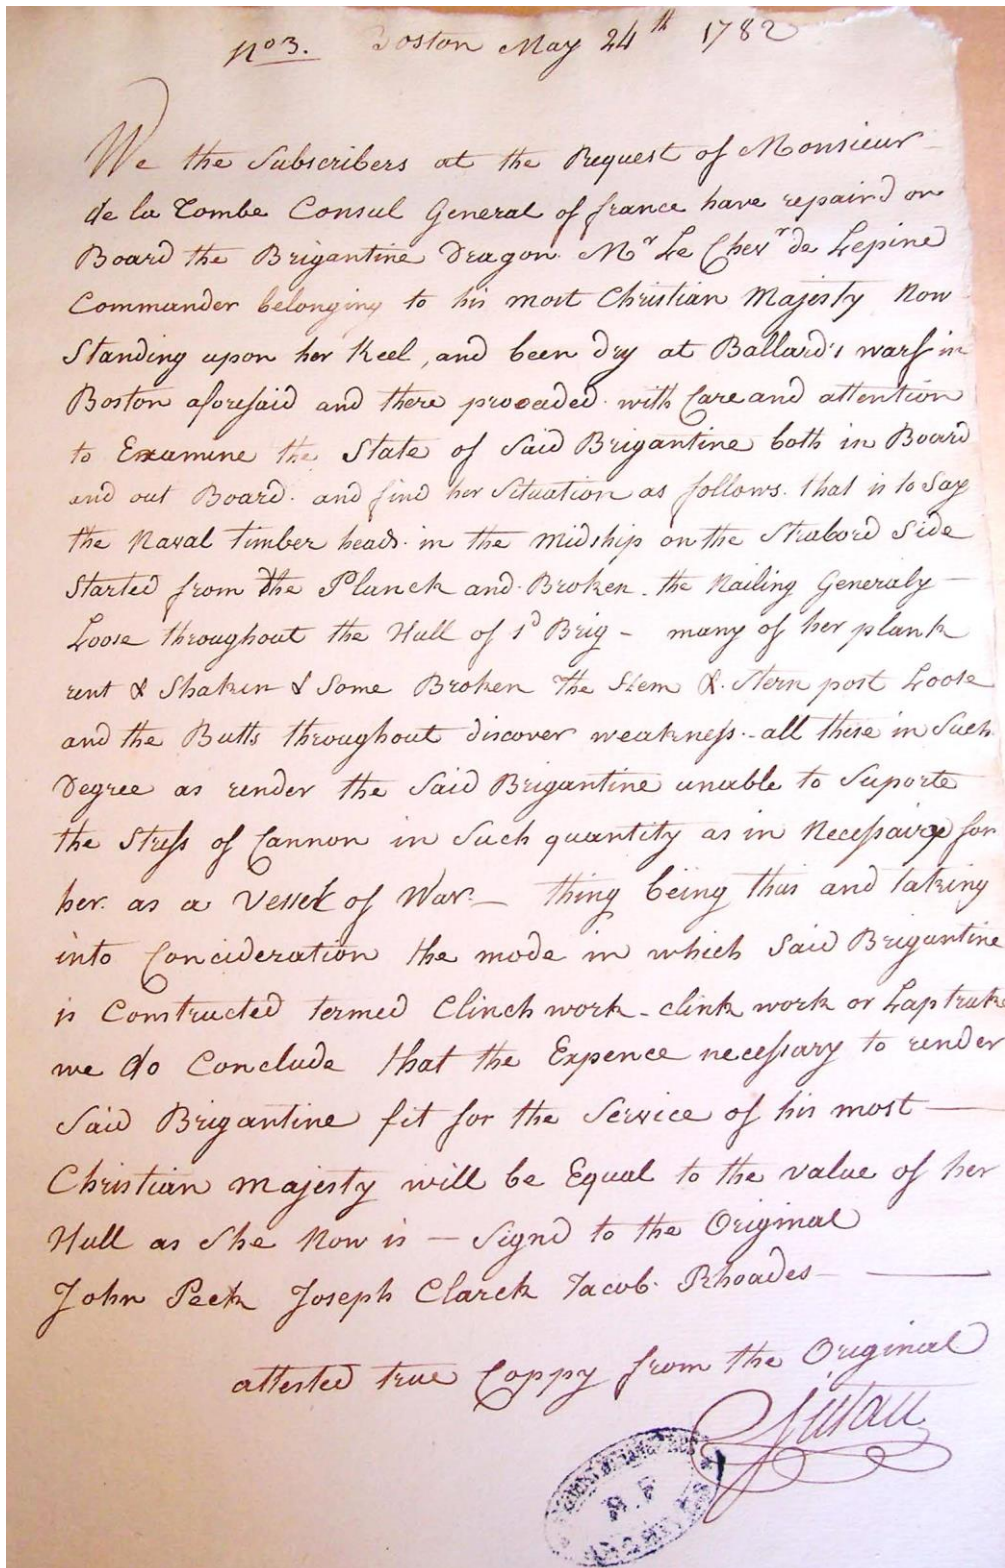 No 3. Boston May 24th 1782
We the Subscribers at the Request of Monsieur
de la Tombe Consul General of france have repair'd on
Board the Brigantine Dragon Mr Le Chevr de Lepine
Commander belonging to his most Christian Majesty Now
Standing upon her Keel, and been dry at Ballard's warf in
Boston aforesaid and there proceded with Care and attention
to Examine the State of Said Brigantine both in Board
and out Board. and find her Situation as follows. that is to Say
the Naval timber heads in the midship on the Strabord Side
Started from the Planck and Broken. the Nailing Generaly —
Loose throughout the Hull of sd Brig – many of her plank
rent & Shaken & Some Broken The Stem & Stern post Loose
and the Butts throughout discover weakness. all these in Such
Degree as render the Said Brigantine unable to Suporte
the Stress of Cannon in Such quantity as in Necessairy for
her as a Vessel of War. — thing being thus and taking
into Concideration the mode in which Said Brigantine
is Constructed termed Clinch work - clink work or Lapstrake
we do Conclude that the Expence necessary to render
Said Brigantine fit for the Service of his most —
Christian majesty will be Equal to the value of her
Hull as She Now is — Signd to the Original
John Peck Joseph Clarck Jacob Rhoades —
attested true Coppy from the Original